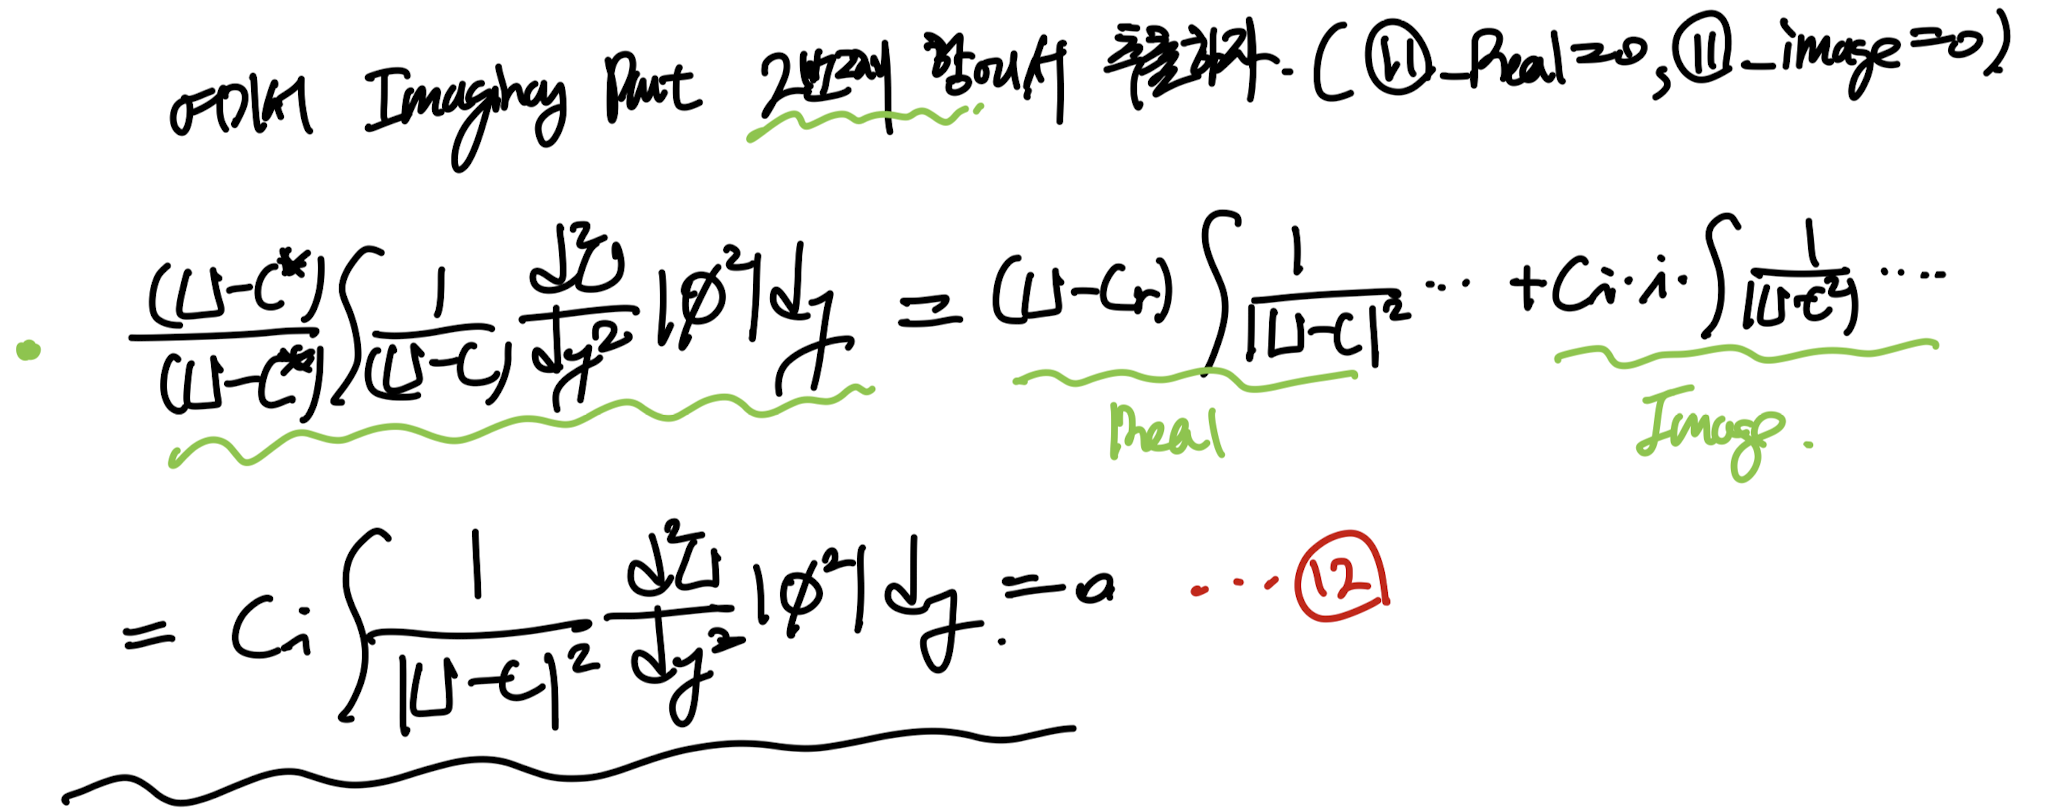 여기서 Imaginay Part 2번째 항에서 추출하자. ( ⑪_Real=0, ⑪_image=0)
(U-C*)/(U-C*) ∫ 1/(U-C) d²U/dy² |φ²| dy = (U-Cr) ∫ 1/|U-C|² ... + Ci·i· ∫ 1/|U-C²| .....
Real Image.
= Ci ∫ 1/|U-C|² d²U/dy² |φ²| dy = 0 ... ⑫